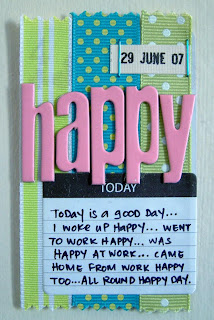 29 JUNE 07
happy
TODAY
TODAY IS A GOOD DAY...
I WOKE UP HAPPY... WENT
TO WORK HAPPY... WAS
HAPPY AT WORK... CAME
HOME FROM WORK HAPPY
TOO...ALL ROUND HAPPY DAY.